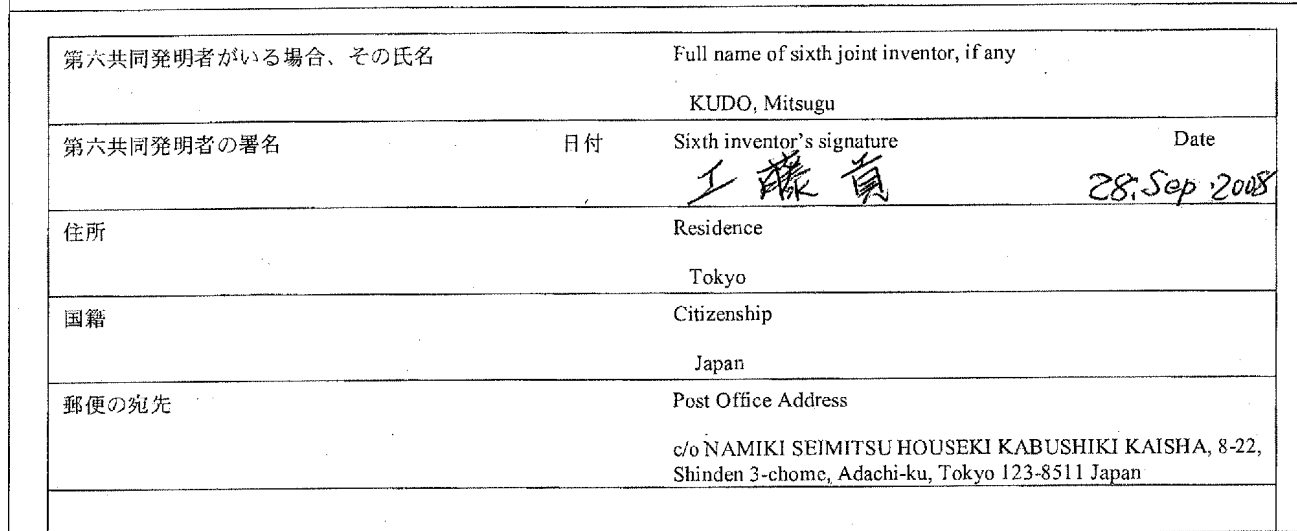 第六共同発明者がいる場合、その氏名
Full name of sixth joint inventor, if any
KUDO, Mitsugu
第六共同発明者の署名 日付
Sixth inventor's signature Date
工藤 貢 28. Sep. 2008
住所
Residence
Tokyo
国籍
Citizenship
Japan
郵便の宛先
Post Office Address
c/o NAMIKI SEIMITSU HOUSEKI KABUSHIKI KAISHA, 8-22,
Shinden 3-chome, Adachi-ku, Tokyo 123-8511 Japan